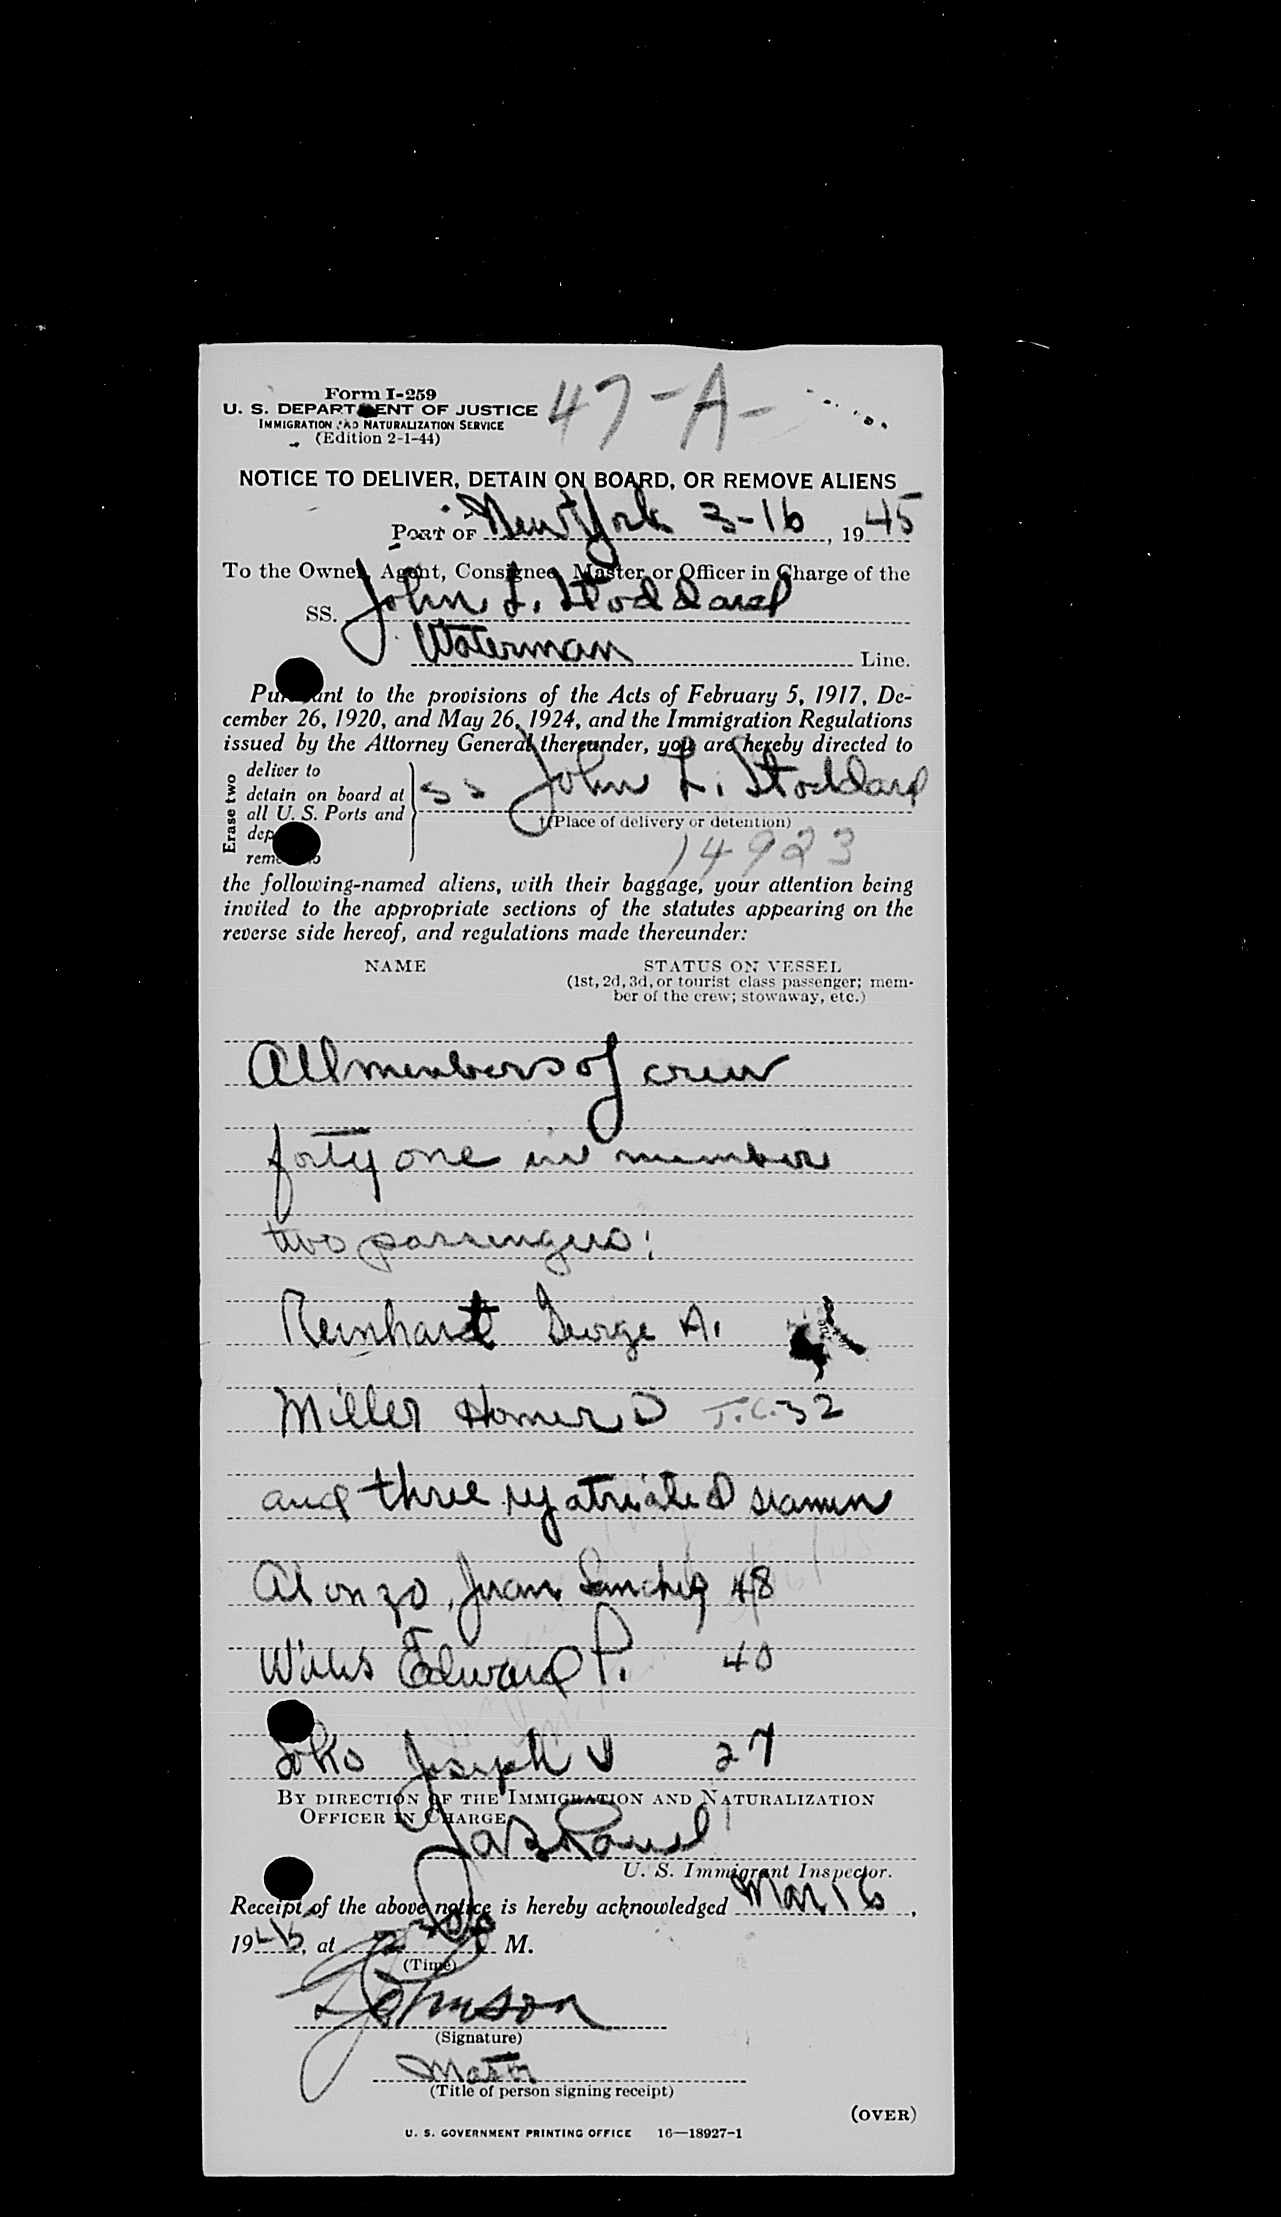 Form I-259
47-A-
U. S. DEPARTMENT OF JUSTICE
IMMIGRATION AND NATURALIZATION SERVICE
(Edition 2-1-44)
NOTICE TO DELIVER, DETAIN ON BOARD, OR REMOVE ALIENS
PORT OF New York 3-16, 1945
To the Owner, Agent, Consignee, Master or Officer in Charge of the
SS. John L. Stoddard
Waterman Line.
Pursuant to the provisions of the Acts of February 5, 1917, De-
cember 26, 1920, and May 26, 1924, and the Immigration Regulations
issued by the Attorney General thereunder, you are hereby directed to
Erase two
deliver to
detain on board at
all U. S. Ports and
SS John L. Stoddard
(Place of delivery or detention)
14923
the following-named aliens, with their baggage, your attention being
invited to the appropriate sections of the statutes appearing on the
reverse side hereof, and regulations made thereunder:
NAME STATUS ON VESSEL
(1st, 2d, 3d, or tourist class passenger; mem-
ber of the crew; stowaway, etc.)
All members of crew
forty one in number
two passengers:
Reinhardt George A.
Miller Homer D 32
and three repatriated seamen
Alonzo, Juan Sanchez 48
Edward P. 40
Joseph V 27
BY DIRECTION OF THE IMMIGRATION AND NATURALIZATION
OFFICER IN CHARGE
U. S. Immigrant Inspector.
Receipt of the above notice is hereby acknowledged Mar 16,
1945, at M.
(Time)
Johnson
(Signature)
Master
(Title of person signing receipt)
(OVER)
U. S. GOVERNMENT PRINTING OFFICE 16—18927-1